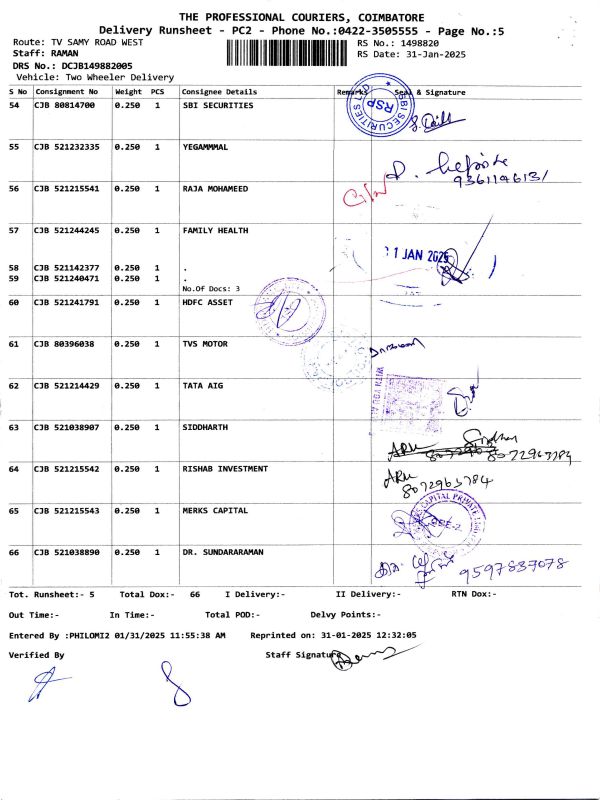 THE PROFESSIONAL COURIERS, COIMBATORE
Delivery Runsheet - PC2 - Phone No.:0422-3505555 - Page No.:5
Route: TV SAMY ROAD WEST RS No.: 1498820
Staff: RAMAN RS Date: 31-Jan-2025
DRS No.: DCJB149882005
Vehicle: Two Wheeler Delivery
S No Consignment No Weight PCS Consignee Details Remarks Seal & Signature
54 CJB 80814700 0.250 1 SBI SECURITIES
SBI SECURITIES LTD RSP
55 CJB 521232335 0.250 1 YEGAMMMAL
9361146131
56 CJB 521215541 0.250 1 RAJA MOHAMEED
57 CJB 521244245 0.250 1 FAMILY HEALTH
31 JAN 2025
58 CJB 521142377 0.250 1 .
59 CJB 521240471 0.250 1 .
No.Of Docs: 3
60 CJB 521241791 0.250 1 HDFC ASSET
61 CJB 80396038 0.250 1 TVS MOTOR
62 CJB 521214429 0.250 1 TATA AIG
63 CJB 521038907 0.250 1 SIDDHARTH
8072963784
64 CJB 521215542 0.250 1 RISHAB INVESTMENT
8072963784
65 CJB 521215543 0.250 1 MERKS CAPITAL
CAPITAL PRIVATE
66 CJB 521038890 0.250 1 DR. SUNDARARAMAN
9597837078
Tot. Runsheet:- 5 Total Dox:- 66 I Delivery:- II Delivery:- RTN Dox:-
Out Time:- In Time:- Total POD:- Delvy Points:-
Entered By :PHILOMI2 01/31/2025 11:55:38 AM Reprinted on: 31-01-2025 12:32:05
Verified By Staff Signature